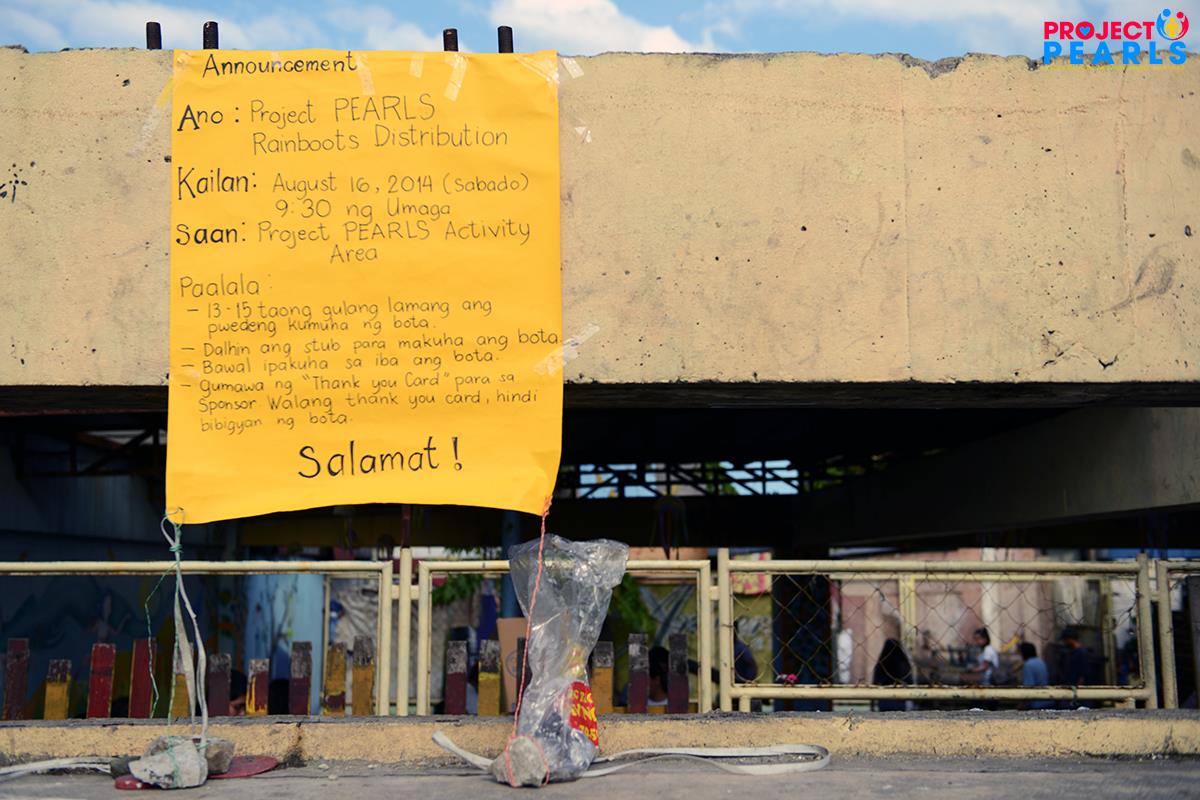 PROJECT
PEARLS
Announcement
Ano: Project PEARLS
Rainboots Distribution
Kailan: August 16, 2014 (Sabado)
9:30 ng Umaga
Saan: Project PEARLS Activity
Area
Paalala:
- 13-15 taong gulang lamang ang
pwedeng kumuha ng bota.
- Dalhin ang stub para makuha ang bota
- Bawal ipakuha sa iba ang bota.
- Gumawa ng "Thank you Card" para sa
Sponsor. Walang thank you card, hindi
bibigyan ng bota.
Salamat!